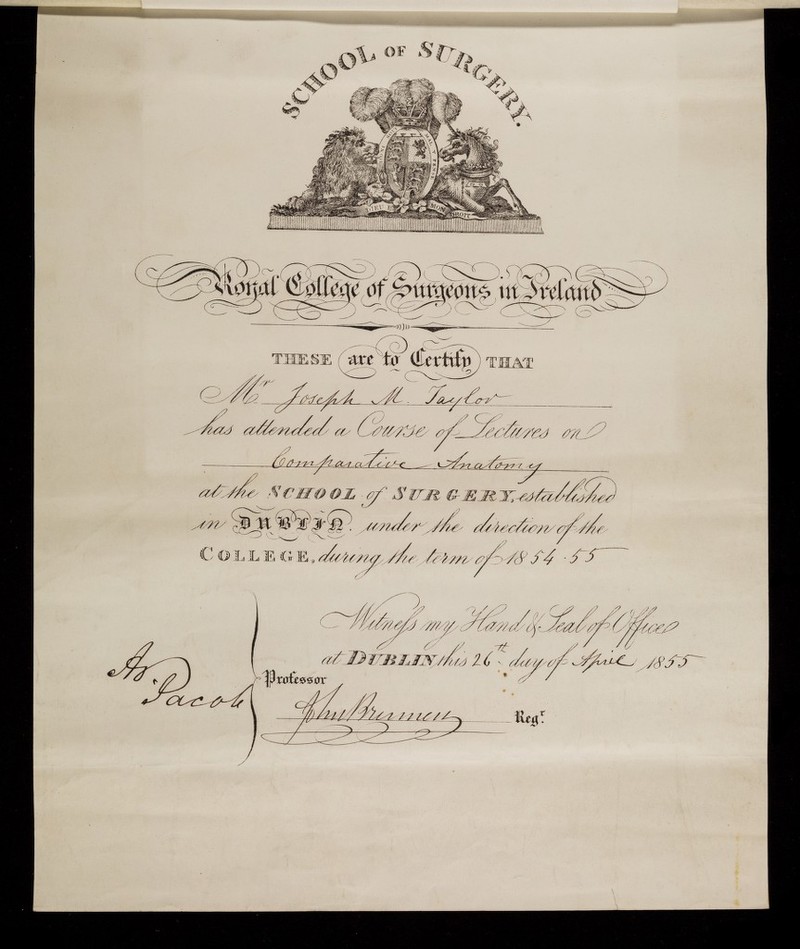 SCHOOL OF SURGERY.
DIEU ET MON DROIT
Royal College of Surgeons in Ireland
THESE are to Certify THAT
Mr Joseph M. Taylor
has attended a Course of Lectures on
Comparative Anatomy
at the SCHOOL of SURGERY, established
in DUBLIN. under the direction of the
COLLEGE, during the term of 1854-55
Witness my Hand & Seal of Office
at DUBLIN this 26th day of April 1855
Professor
Jacob
John Brennen Regr